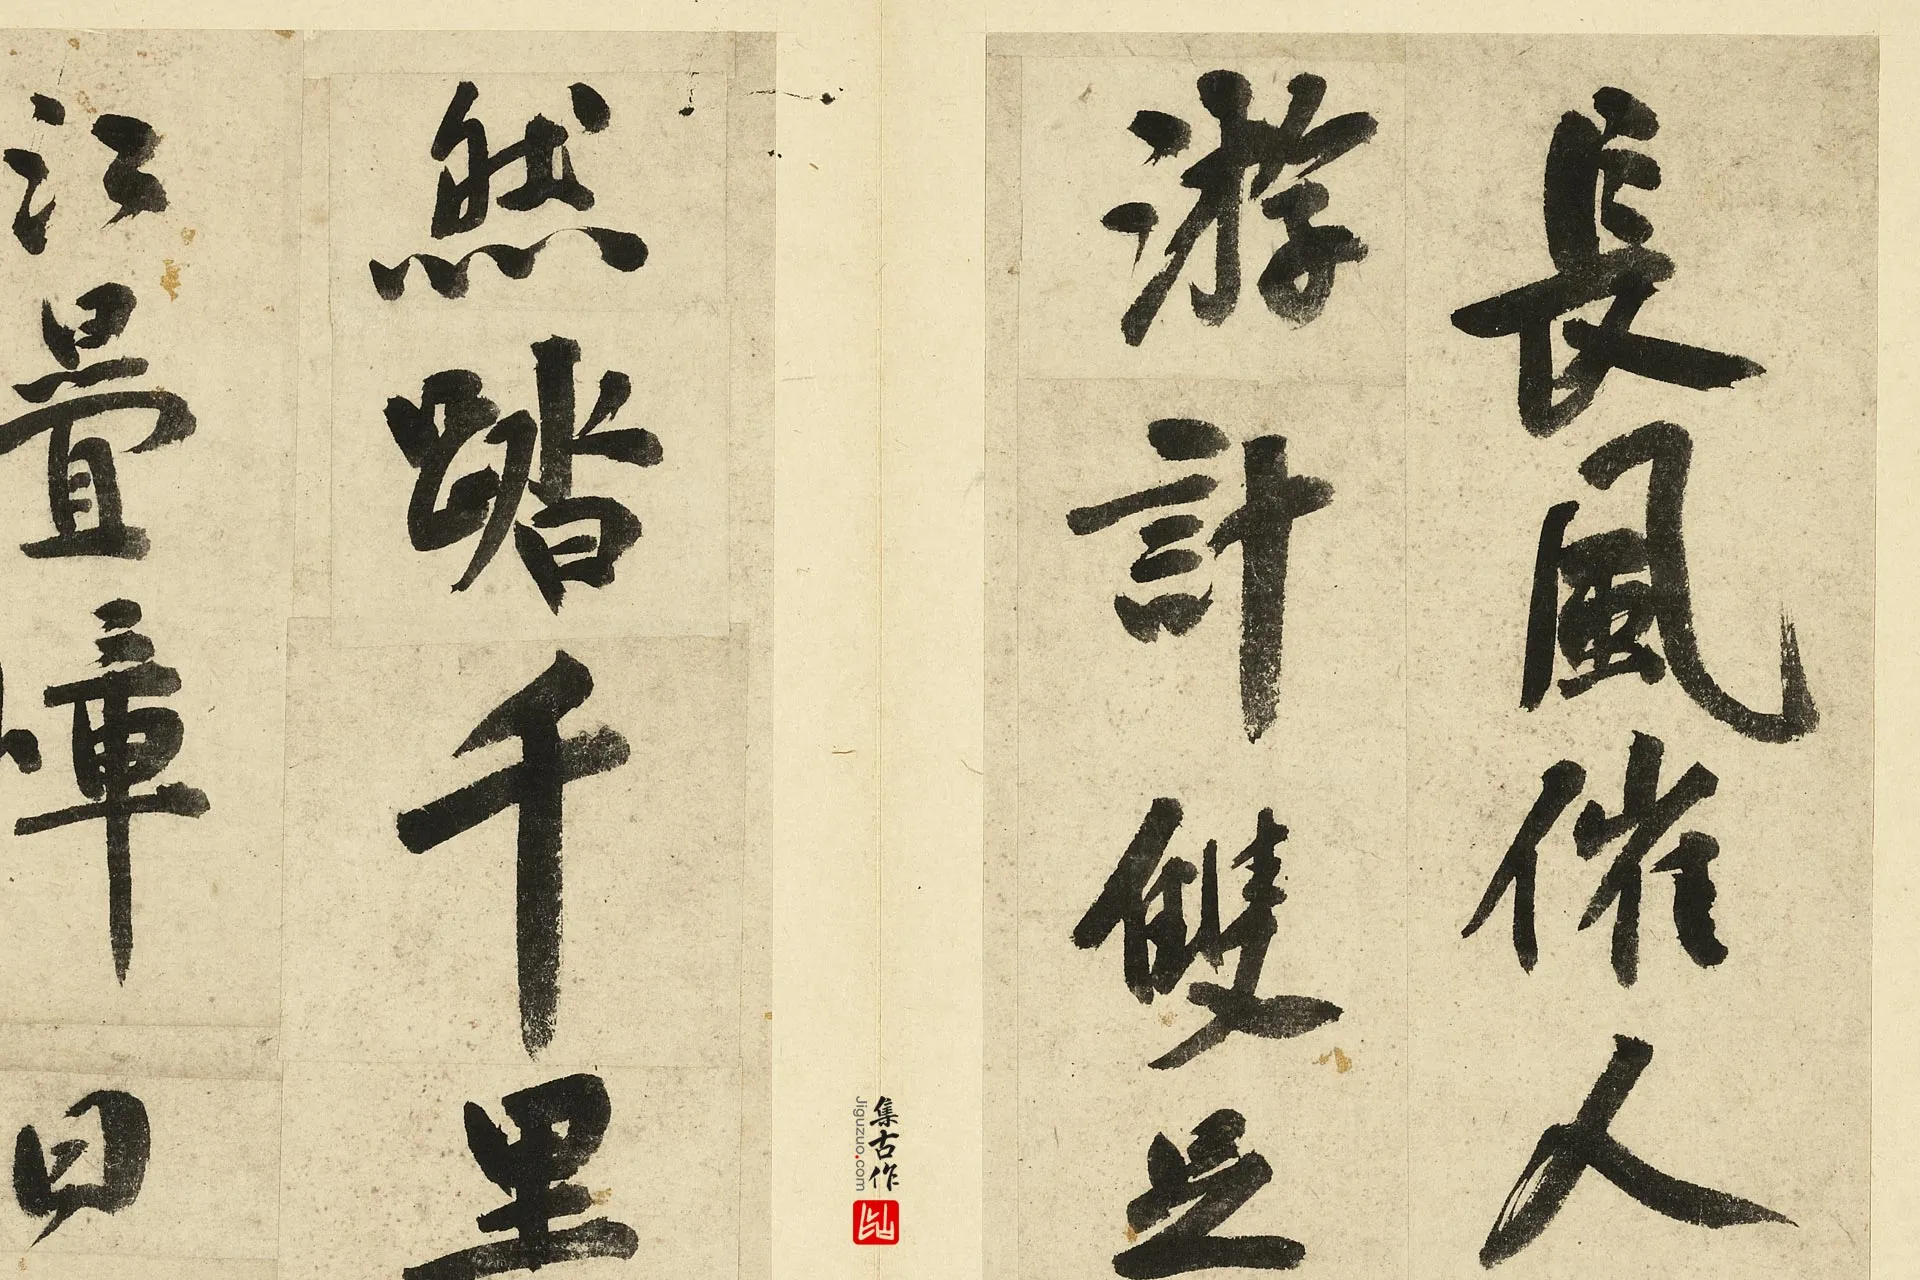 長風催人
游計雙足
然踏千里
江疊嶂日
集古作
Jiguzuo.com